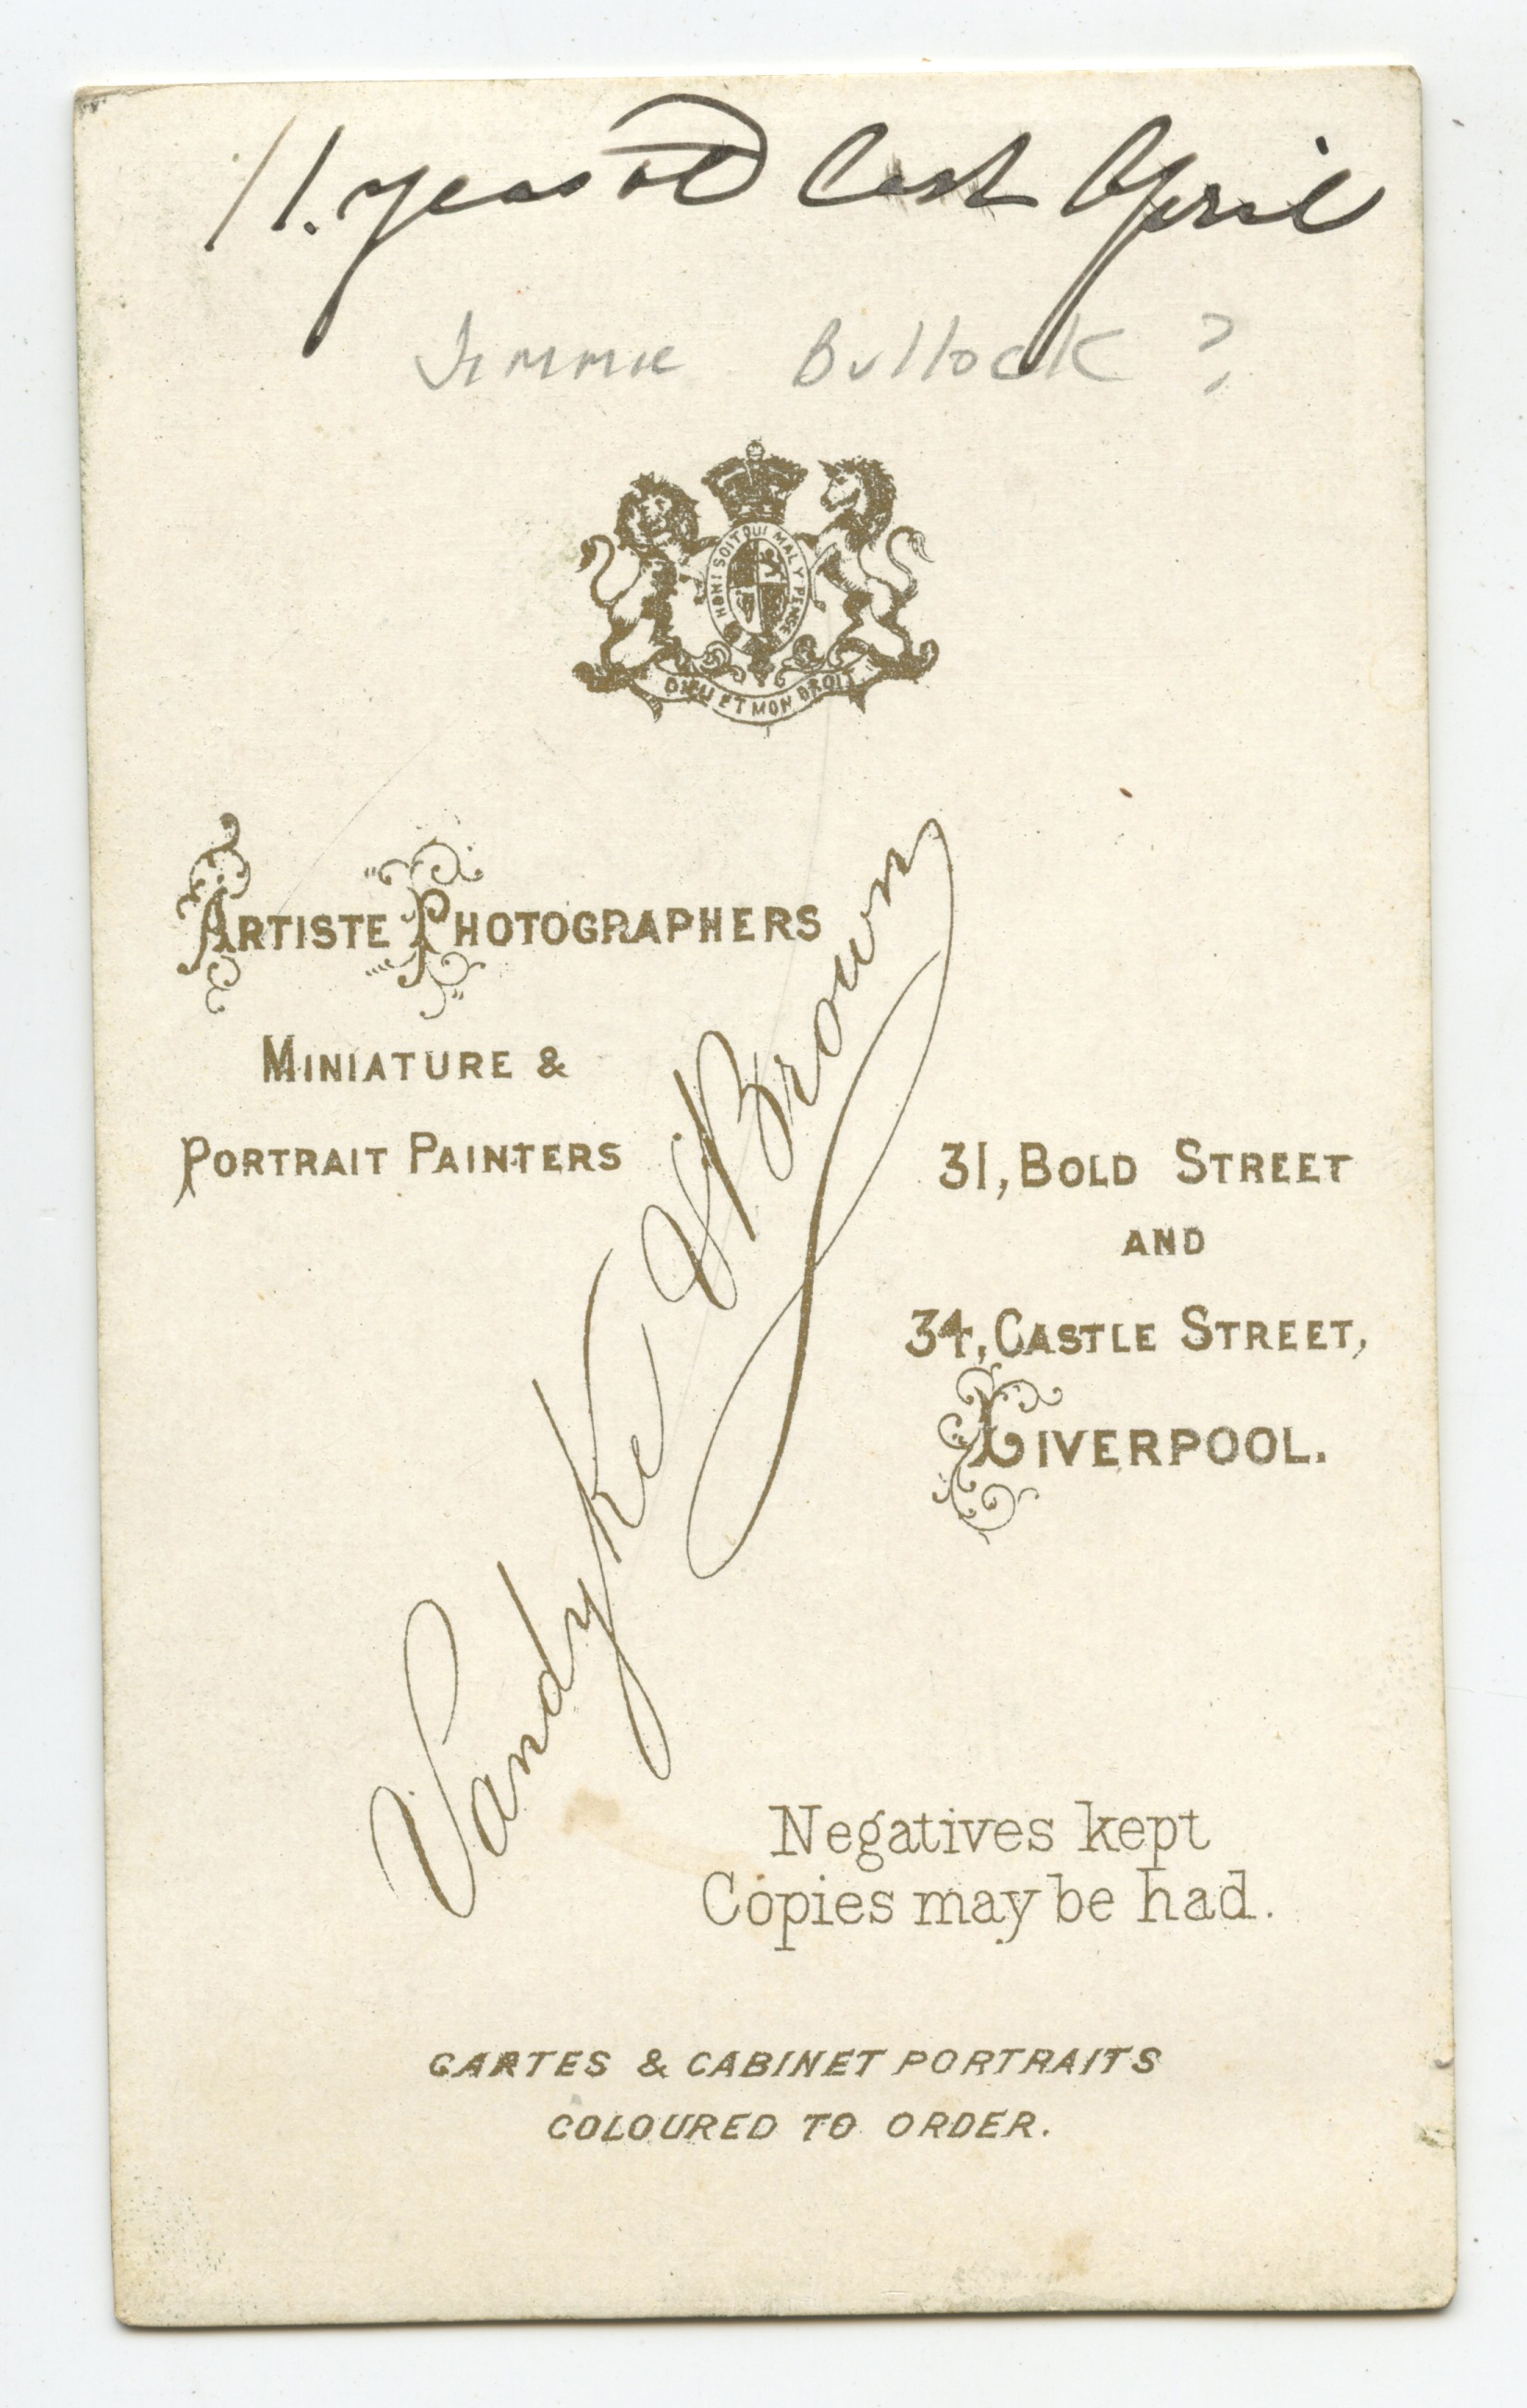 11. years old last April
Jimmie Bullock ?
HONI SOIT QUI MAL Y PENSE
DIEU ET MON DROIT
ARTISTE PHOTOGRAPHERS
MINIATURE &
PORTRAIT PAINTERS
Vandyke & Brown
31, BOLD STREET
AND
34, CASTLE STREET,
LIVERPOOL.
Negatives kept
Copies may be had.
CARTES & CABINET PORTRAITS
COLOURED TO ORDER.